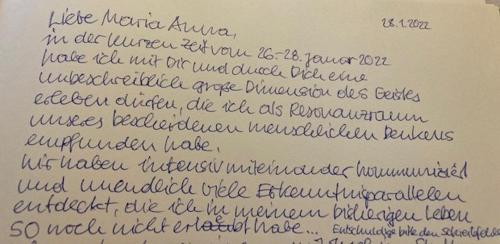 28.1.2022
Liebe Maria Anna,
in der kurzen Zeit vom 26.-28. Januar 2022
habe ich mit Dir und durch Dich eine
unbeschreiblich große Dimension des Geistes
erleben dürfen, die ich als Resonanzraum
unseres bescheidenen menschlichen Denkens
empfunden habe.
Wir haben intensiv miteinander kommuniziert
und unendlich viele Erkenntnisparallelen
entdeckt, die ich in meinem bisherigen Leben
so noch nicht erlebt habe... Entschuldige bitte den Schreibfehler